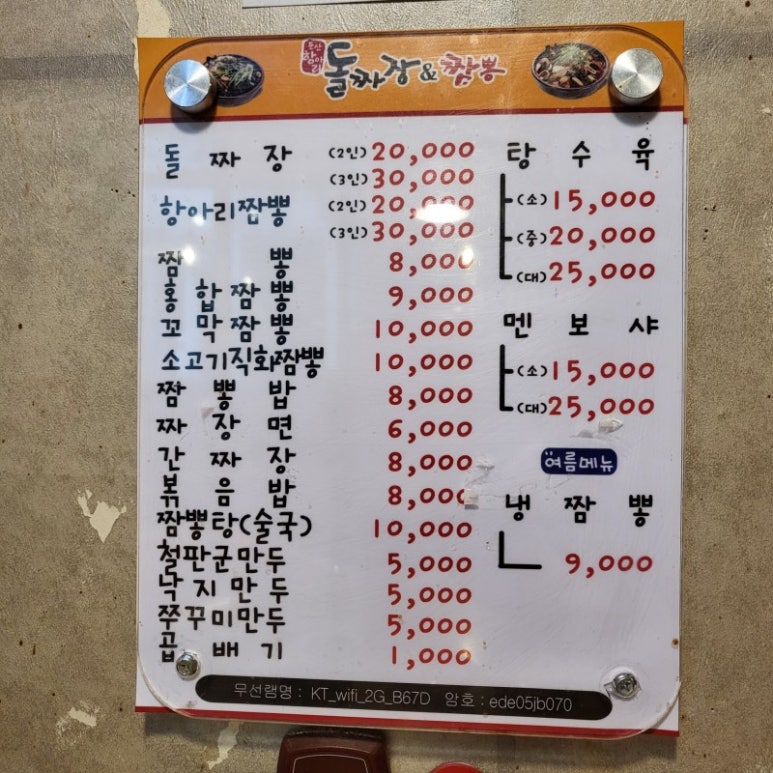 둔산
항아리
돌짜장&짬뽕
돌 짜 장 (2인) 20,000
(3인) 30,000
항아리짬뽕 (2인) 20,000
(3인) 30,000
짬 뽕 8,000
홍 합 짬 뽕 9,000
꼬 막 짬 뽕 10,000
소고기직화짬뽕 10,000
짬 뽕 밥 8,000
짜 장 면 6,000
간 짜 장 8,000
볶 음 밥 8,000
짬뽕탕(술국) 10,000
철판군만두 5,000
낙 지 만 두 5,000
쭈꾸미만두 5,000
곱 배 기 1,000
탕 수 육
(소) 15,000
(중) 20,000
(대) 25,000
멘 보 샤
(소) 15,000
(대) 25,000
여름메뉴
냉 짬 뽕
9,000
무선랩명 : KT_wifi_2G_B67D 암호 : ede05jb070